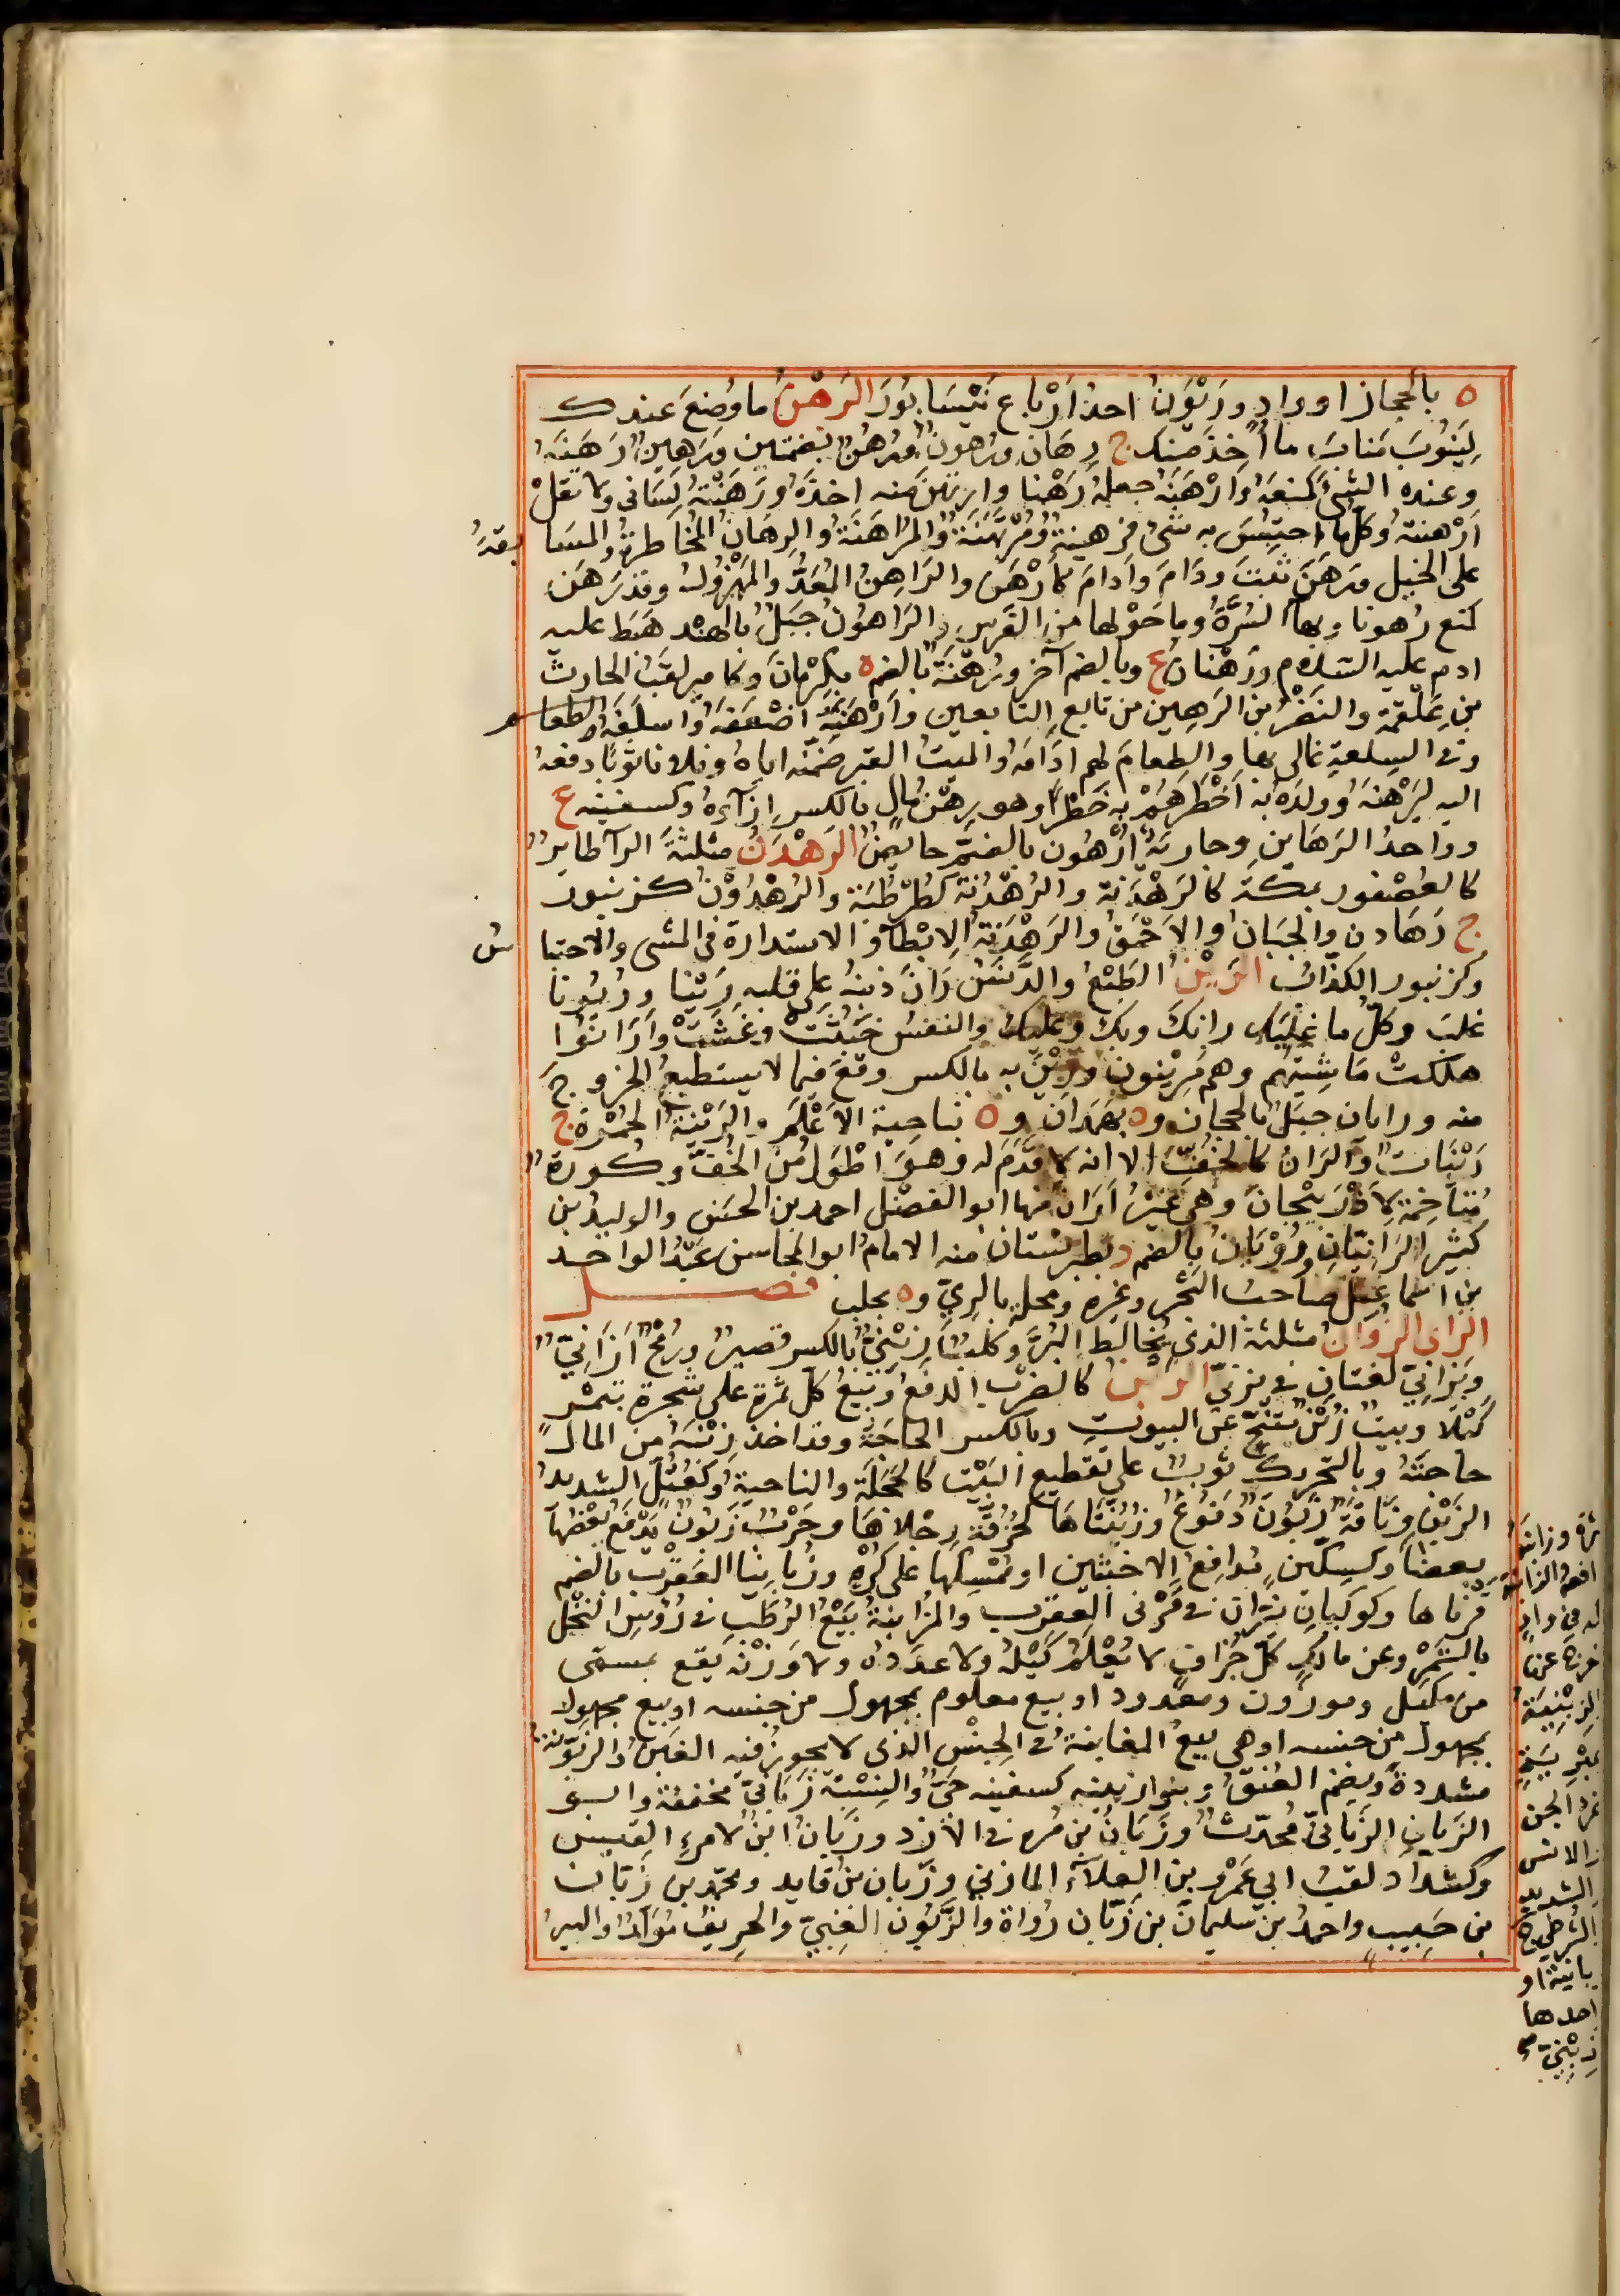 ه بالحجاز او واد ورَيْوَنْدُ احدُ اَرْباعِ نَيْسَابُورَ الرَهْنُ مَا وُضعَ عندك
لِيَنُوبَ مَنابَ ما اُخِذَ منك ج رِهَانٌ ورُهونٌ ورُهُنٌ بضمتين ورَهِينٌ رَهَنَهُ
وعنده الشئَ كمنعَهُ وَاَرْهَنَهُ جعلهُ رَهْنا وارتهنَ منه اخذَهُ ورَهَنْتُهُ لِسَانى ولا تقلْ
اَرْهنتهُ وكلّ ما احتُبِسَ به شئ فرهينةٌ ومُرْتَهَنَةٌ والمُرَاهَنَةُ والرِهَانُ المُخَاطرةُ والمسَا
بقةُ
على الخيل ورَهَنَ ثبتَ ودَامَ واَدامَ كاَرْهَنَ والرَاهِنُ المُعَدُّ والمَهْزُولُ وقد رَهَنَ
كمنع رُهونا وبهاءٍ السُرَّةُ وما حَوْلها من الفَرسِ والرَاهُونُ جَبَلٌ بالهند هَبَطَ عليه
ادم عليه السّلام ورَهْنانُ ع وبالضم آخر ورُهْنَةُ بالضم ه بكَرْمَانَ وكاميرٍ لقَبُ الحارث
بنِ عَلْقَمَة والنَضْرُ بن الرَهِين من تابعِ التابعين واَرْهَنَهُ اضْعَفَهُ واسلَفَهُ والطعام
وفى السِلعةِ غالى بها والطعامَ لهم ادَامَهُ والميتَ القبرَ ضَمّنَه اياهُ وفلانا ثوبًا دفعهُ
اليه ليَرْهنَهُ وولدَهُ به اَخْطَرَهُمْ به خَطَرًا وهو رِهْنُ مالٍ بالكسر ازَآءهُ وكسفينه ع
وواحدُ الرَهَاينِ وجاريةٌ اُرْهُون بالضمّ حايضٌ الرَهْدَنُ مثلثةَ الرآ طايرٌ
كالعُصْفور بمكة كالرَهْدَنة والرُهْدُنة كطُرْطُبَّة والرُهْدُونُ كزنبور
ج رَهَادن والجَبَانُ والاَحْمقُ والرَهْدَنَةُ الاِبْطآء والاستدارة فى المشى والاحتبا
س
وكزنبور الكذّاب الرَيْنُ الطَبْعُ والدَنَسُ رَانَ ذنبُهُ على قلبه رَيْنا ورُيُونا
غلبَ وكلّ ما غلبكَ رانكَ وبكَ وعليك والنفسُ خَبُثَتْ وغَثَتْ وَاَرَانُوا
هلكتْ مَاشِيَتُهم وهم مُرِينُون ورِيْنَ به بالكسر وقعَ فيما لا يستطيع الخروجَ
منه ورايان جبَلٌ بالحجاز و ه بهَمَدَانَ و ه بناحية الاَعْلَمِ والرَيْنةُ الخَمْرة ج
رَيْنَاتٌ والرَانُ كالخُفِّ الا انه لا قَدَمَ له وهو اطْوَلُ من الخُفّ وكورة
مُتَاخِمَةٌ لاَذْرَبيْجَانَ وهى غيْرُ اَرَّانَ منها ابو الفضْل احمد بن الحسَن والوليدُ بن
كثير الرَانيّانِ ورُوْيَانُ بالضم د بطبرِسْتانَ منه الامامُ ابو المحاسن عَبْدُ الواحد
بن اسماعيل صاحبُ البَحْر وغيرِه ومحلة بالريّ و ه بحلب فصل
الزاى الزوان مثلثة الذى يُخالط البُرَّ وكلبٌ زِئْنِيٌّ بالكسر قصيرٌ ورُمْحٌ اَزَانِيٌّ
ويَزَانِيٌّ لغتانِ فى يزنيّ الزبن كالضرْب الدفعُ وبَيْعُ كلّ ثمرة على شجرة بتَمْر
كيْلا وبيتٌ زَبْنٌ مُتَنَحٍّ عن البيوت وبالكسر الحاجَةُ وقد اخذ زِبْنَهُ من المال
حاجتَهُ وبالتحريك ثوبٌ على تقطيع البَيْت كالحَجَلَة والناحيةُ وكعُتُلٍّ الشديدُ
الزَبْنِ وناقَةٌ زَبُونٌ دَفُوعٌ وزُبُنَّتاها كحُزُقَّةٍ رِجْلاهَا وحَرْبٌ زَبُونٌ يَدْفَعُ بعْضُها
بعضًا وكسِكّينٍ مُدافِعُ الاخبثين او مُمْسِكُها على كُرْهٍ وزُبانَيا العَقْرَب بالضم
قرناها وكوكبانِ نيّران فى قَرْنَى العقرب والمُزَابنةُ بَيْعُ الرُطَبِ فى رُؤسِ النَخْل
بالتَمْر وعن مالكٍ كلّ جُزافٍ لا يُعْلَمُ كَيْلُه ولا عدَدُه ولا وزْنُه بيع بمسمّى
من مكيل وموزون ومعدود او بيع معلوم بمجهول من جنسه او بيع مجهول
بمجهول من جنسه او هى بيعُ المغابنةُ فى الجِنْس الذى لا يجوز فيه الغَبن والزَبّونة
مشددةً ويضم العُنقُ وبنو زبينه كسفينه حَيٌّ والنِسْبَة زَبَانيّ مخففة وابو
الزَبان الزَبانيّ مُحدّث وزَبَانُ بن مُره فى الازد وزَبّان ابنٌ لامرءِ القيس
وكشدّاد لقبُ ابى عَمْرو بن العلآء المازنيّ وزَبّان بن قايد ومحمّد بن زَبّان
بن حَبيب واحمدُ بن سليمان بن زَبّان رُواة والزَبُون الغبيّ والحريفُ مُوَلّدٌ والبير
احدها